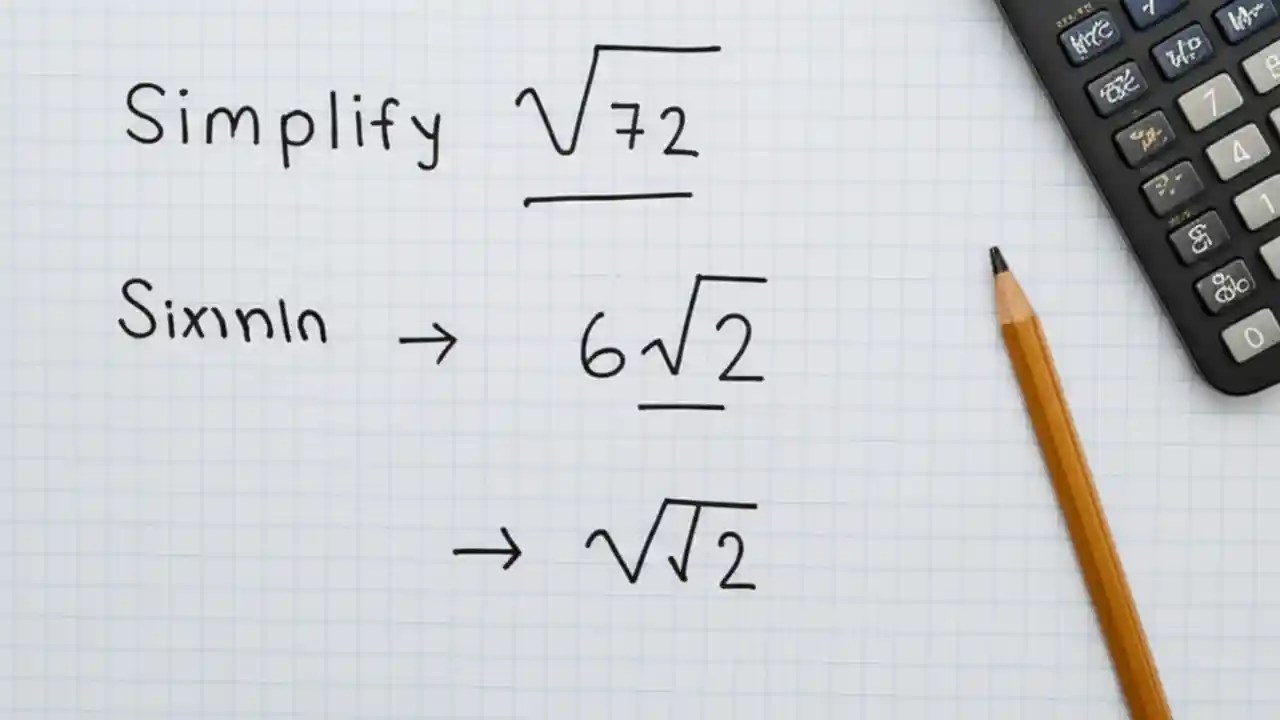 Simplify √72
Sixnln → 6√2
→ √√2
7
4
1
0